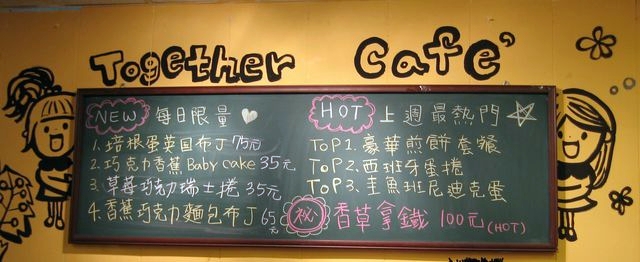 Together Cafe'
NEW 每日限量
1. 培根蛋英国布丁 75元
2. 巧克力香蕉 Baby cake 35元
3. 草莓巧克力瑞士捲 35元
4. 香蕉巧克力麵包布丁 65元
HOT 上週最熱門
TOP1. 豪華煎餅套餐
TOP2. 西班牙蛋捲
TOP3. 主魚班尼迪克蛋
秘 香草拿鐵 100元 (HOT)